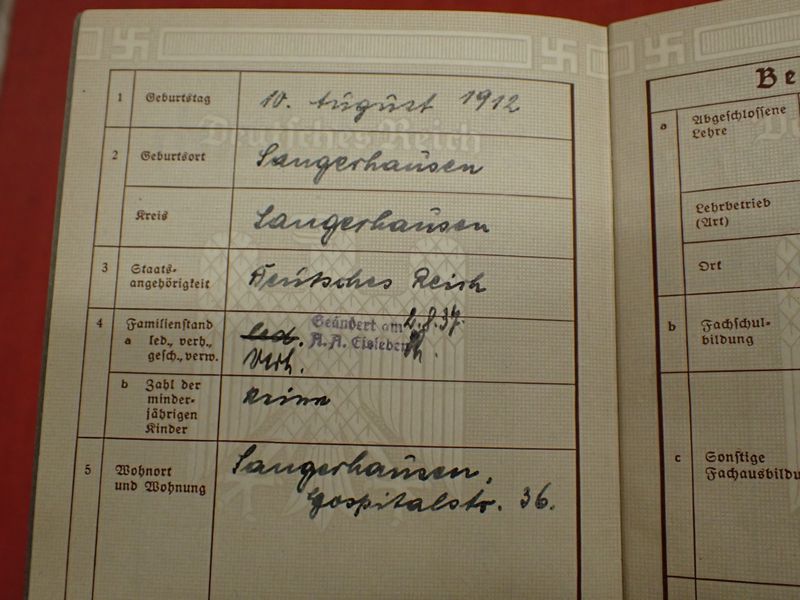 1 Geburtstag 10. August 1912
Deutsches Reich
2 Geburtsort Sangerhausen
Kreis Sangerhausen
3 Staats-
angehörigkeit Deutsches Reich
4 Familienstand
a led., verh.,
gesch., verw.
led. Geändert am 2.8.37.
A. A. Eisleben
Verh.
b Zahl der
minder-
jährigen
Kinder
keine
5 Wohnort
und Wohnung
Sangerhausen,
Hospitalstr. 36.
Be
a Abgeschlossene
Lehre
Lehrbetrieb
(Art)
Ort
b Fachschul-
bildung
c Sonstige
Fachausbildu